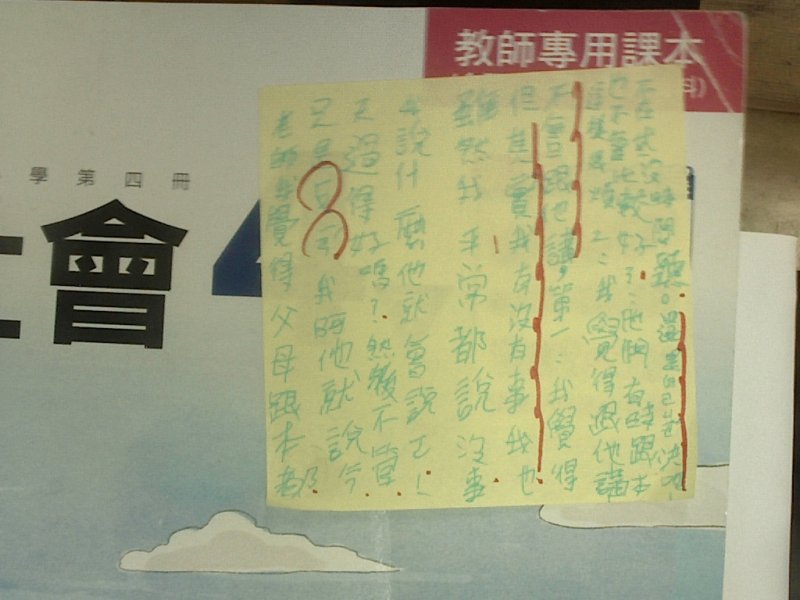 教師專用課本
學第四冊
會
老師我覺得父母跟本都
我 他就說今
天過得好嗎?然後不管
我說什麼他就會說
雖然我平常都說沒事
但其實我有沒有事我也
不會跟他講,第一:我覺得
這樣 煩 2:我覺得跟他講
也不會比較好 3:他們有時跟本
不在 沒時間聽。還是自己